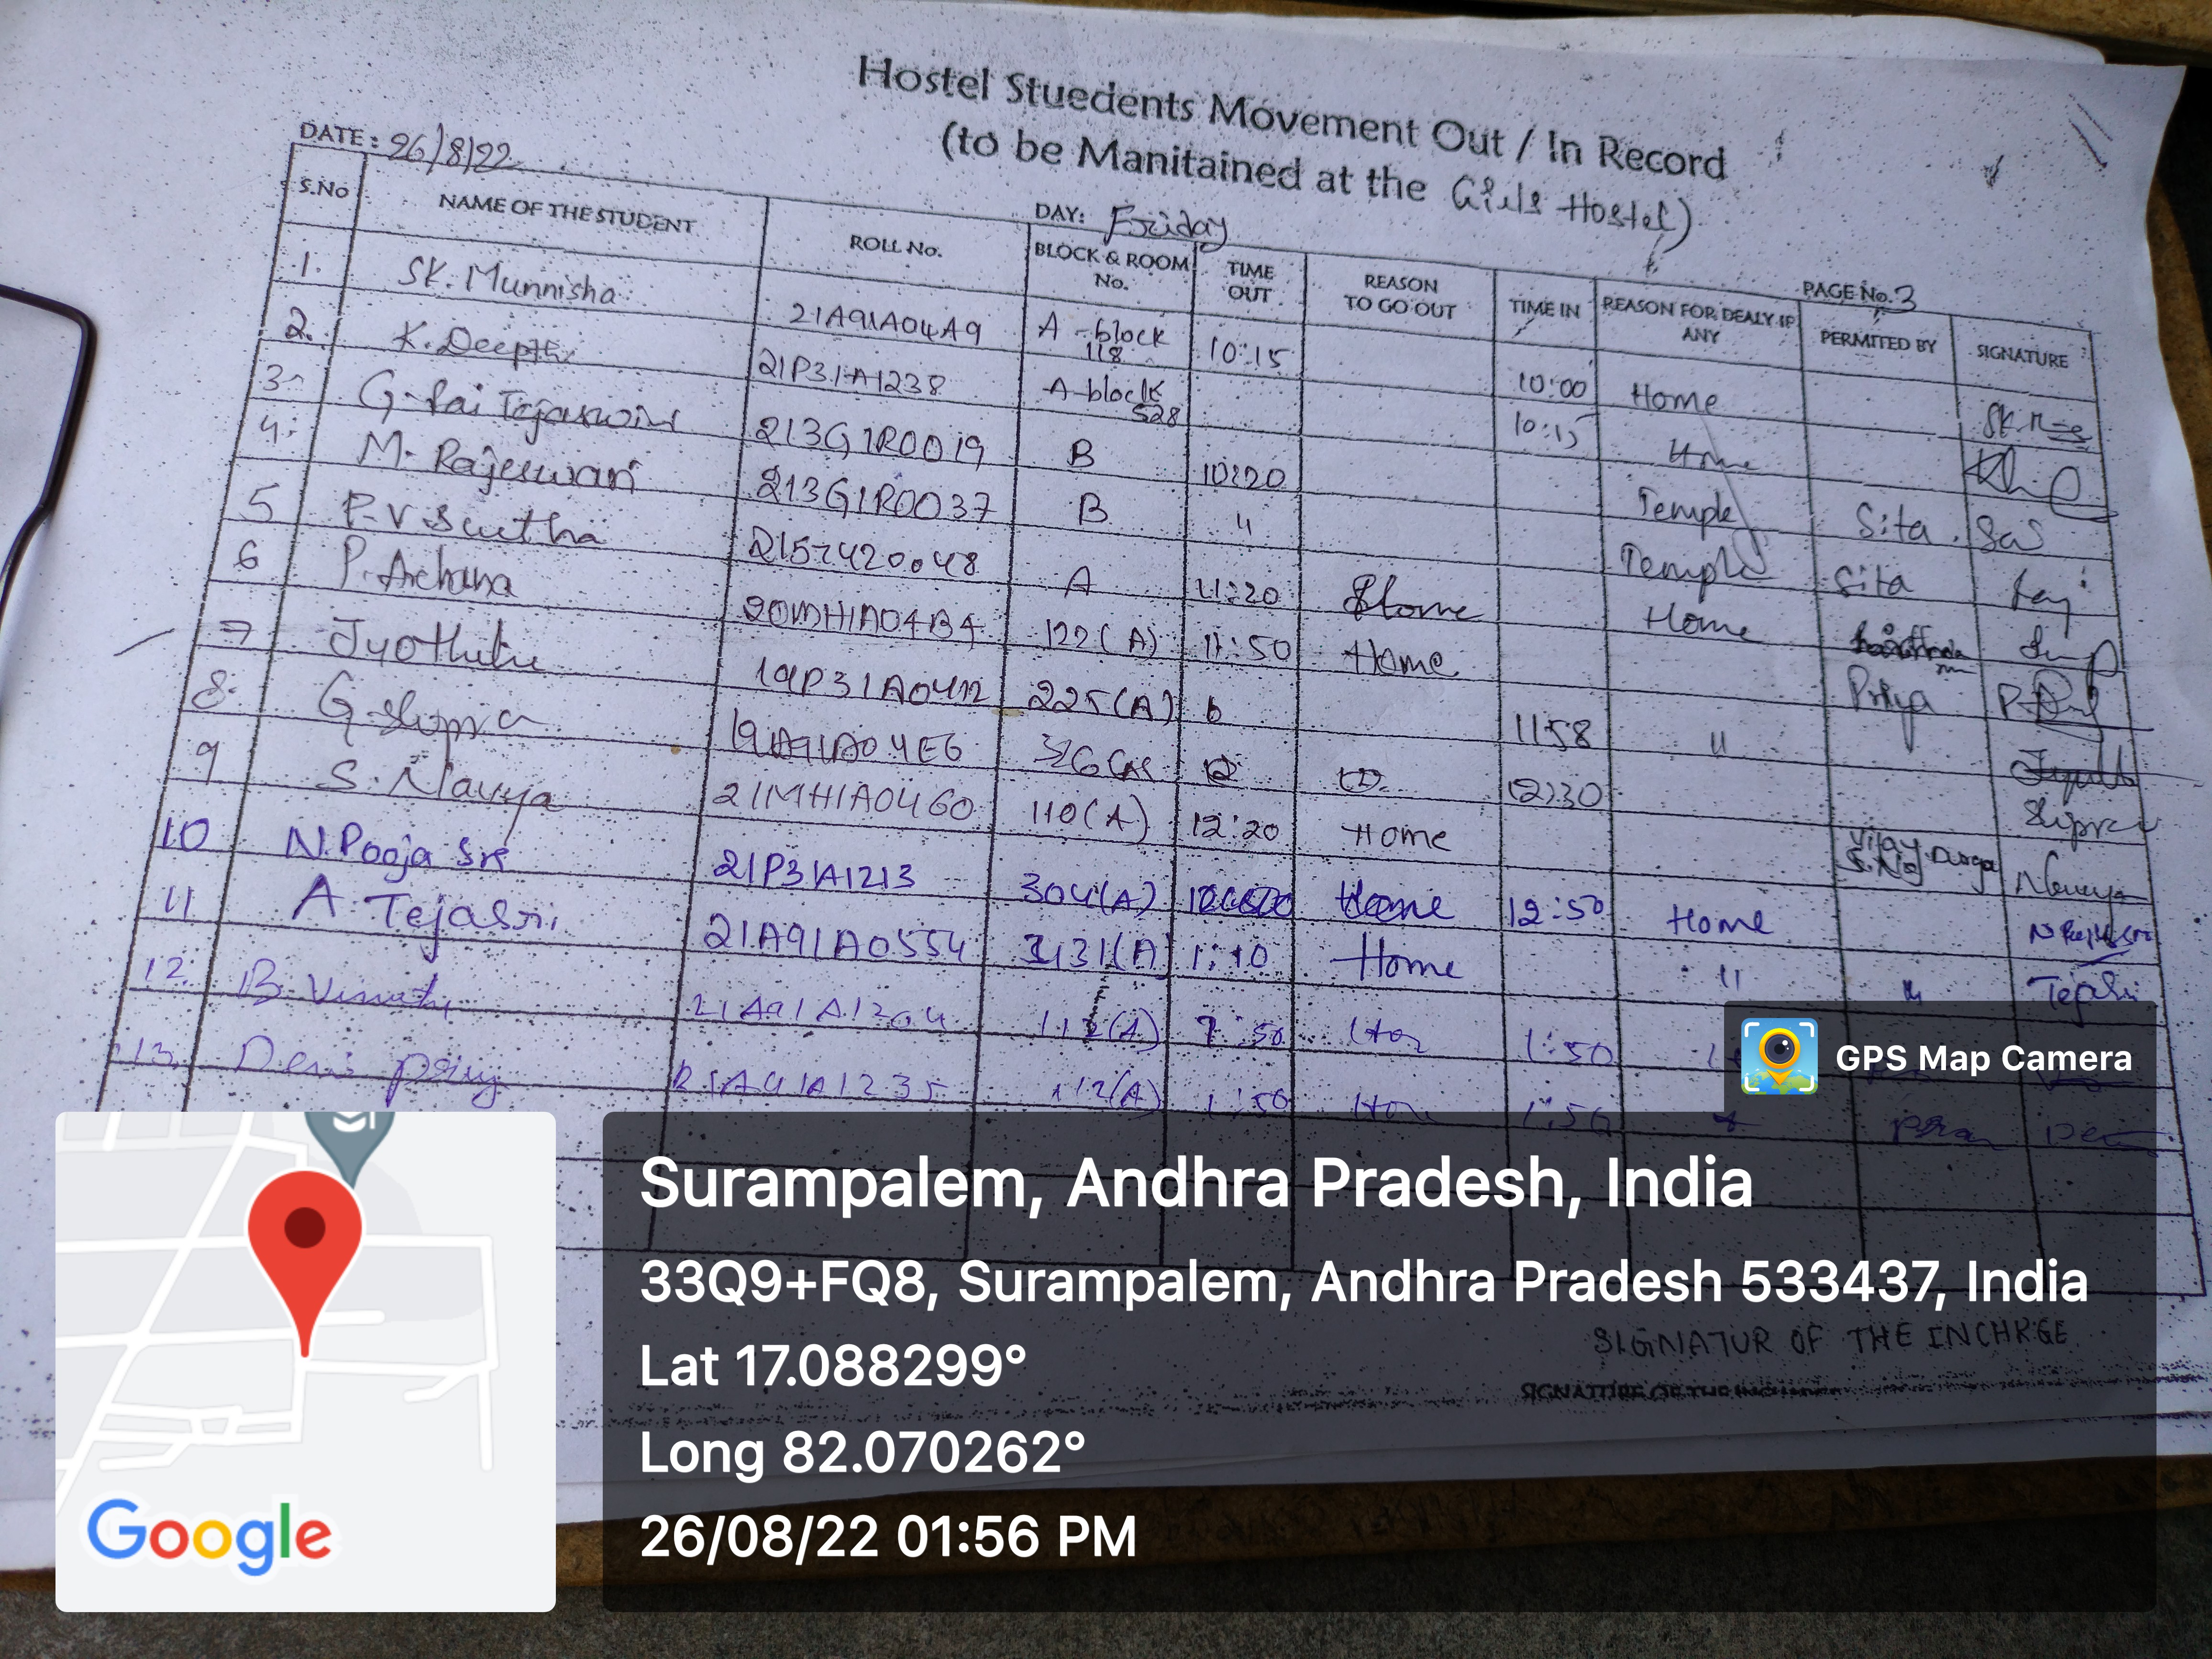 Hostel Stuedents Movement Out / In Record
(to be Manitained at the Girls Hostel)
DATE: 26/8/22 DAY: Friday PAGE No. 3
S.No NAME OF THE STUDENT ROLL No. BLOCK & ROOM No. TIME OUT REASON TO GO OUT TIME IN REASON FOR DEALY IF ANY PERMITED BY SIGNATURE
1. SK. Munnisha 21A91A04A9 A-block 118 10:15 10:00 Home
2. K. Deepthi 21P31A1238 A-block 528 10:15 Home
3. G. Sai Tejaswini 213G1R0019 B 10:20 Temple Sita Sai
4. M. Rajeswari 213G1R0037 B " Temple Sita
5 P.V. 2157420048 A 11:20 Home Home
6 P. Archana 20MH1A04B4 122(A) 11:50 Home Priya
7 19P31A0412 225(A) 11:58 "
8. G. 19A91A04E6 12:30
9 S. Navya 21MH1A0460 110(A) 12:20 Home Vijay Durga Navya
10 N. Pooja Sri 21P31A1213 304(A) Home 12:50 Home
11 A. Tejasri 21A91A0554 (A) 1:10 Home " " Tejasri
12. B. 21A91A1204 112(A) :50 1:50
13. priy 21A91A1235 112(A) 1:50
SIGNATUR OF THE INCHRGE
GPS Map Camera
Surampalem, Andhra Pradesh, India
33Q9+FQ8, Surampalem, Andhra Pradesh 533437, India
Lat 17.088299°
Long 82.070262°
26/08/22 01:56 PM
Google